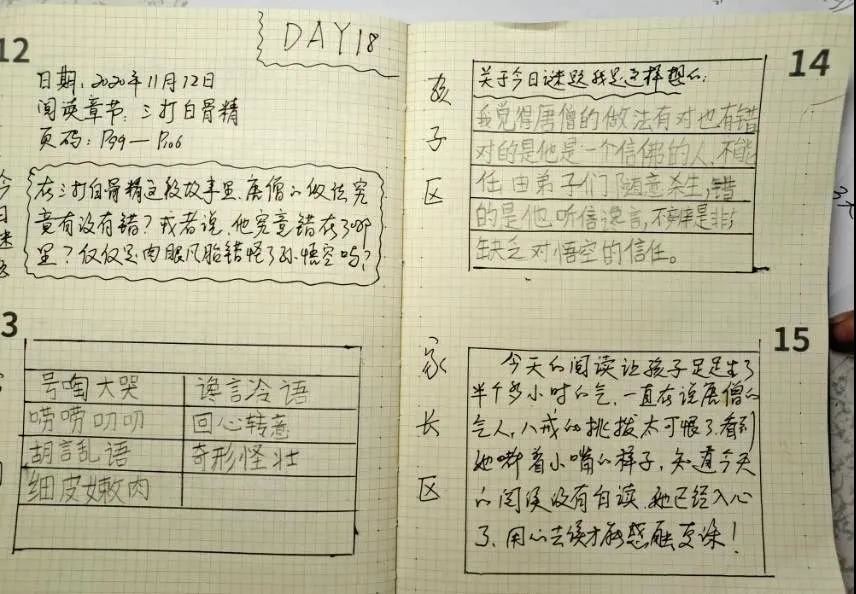 12
DAY18
日期:2020年11月12日
阅读章节:三打白骨精
页码:P99—P106
今日谜题
在三打白骨精这段故事里,唐僧的做法究
竟有没有错?或者说,他究竟错在了哪
里?仅仅是肉眼凡胎错怪了孙悟空吗?
3
号啕大哭 谗言冷语
唠唠叨叨 回心转意
胡言乱语 奇形怪壮
细皮嫩肉
14
孩子区
关于今日谜题我是这样想的:
我觉得唐僧的做法有对也有错
对的是他是一个信佛的人,不能
任由弟子们随意杀生,错
的是他听信谗言,不辨是非,
缺乏对悟空的信任。
15
家长区
今天的阅读让孩子足足生了
半个多小时的气,一直在说唐僧的
气人,八戒的挑拨太可恨了,看到
她嘟着小嘴的样子,知道今天
的阅读没有白读,她已经入心
了,用心去读才能感触更深!